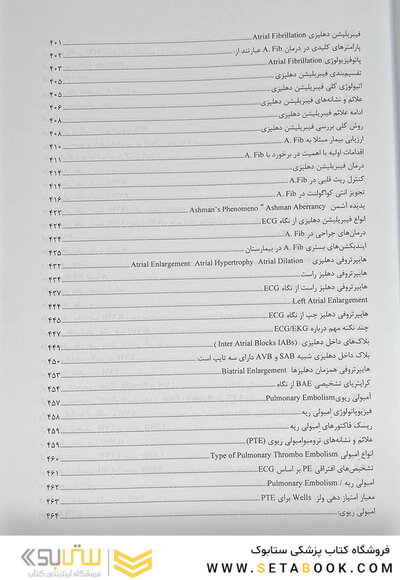 فیبریلیشن دهلیزی Atrial Fibrillation ۴۰۱
پارامترهای کلیدی در درمان A. Fib عبارتند از: ۴۰۲
پاتوفیزیولوژی Atrial Fibrillation ۴۰۳
تقسیم‌بندی فیبریلیشن دهلیزی ۴۰۵
اتیولوژی کلی فیبریلیشن دهلیزی ۴۰۵
علائم و نشانه‌های فیبریلیشن دهلیزی ۴۰۶
ادامه علائم فیبریلیشن دهلیزی ۴۰۸
روش کلی بررسی فیبریلیشن دهلیزی ۴۰۸
ارزیابی بیمار مبتلا به A. Fib ۴۱۰
اقدامات اولیه با اهمیت در برخورد با A. Fib ۴۱۱
درمان فیبریلیشن دهلیزی ۴۱۴
کنترل ریت قلبی در A.Fib ۴۱۴
تجویز آنتی کواگولنت در A. Fib ۴۱۶
پدیده آشمن Ashman's Phenomeno " Ashman Aberrancy ۴۲۲
انواع فیبریلیشن دهلیزی از نگاه ECG ۴۲۴
درمان‌های جراحی در A. Fib ۴۲۴
اندیکشن‌های بستری A. Fib در بیمارستان ۴۲۵
هایپرتروفی دهلیزی Atrial Enlargement Atrial Hypertrophy Atrial Dilation ۴۳۲
هایپرتروفی دهلیز راست ۴۳۴
هایپرتروفی دهلیز راست از نگاه ECG ۴۳۷
Left Atrial Enlargement: ۴۴۴
هایپرتروفی دهلیز چپ از نگاه ECG ۴۴۵
چند نکته مهم درباره ECG/EKG ۴۴۷
بلاک‌های داخل دهلیزی (Inter Atrial Blocks IABs) ۴۴۹
بلاک داخل دهلیزی شبیه SAB و AVB دارای سه تایپ است: ۴۵۰
هایپرتروفی همزمان دهلیزها Biatrial Enlargement ۴۵۳
کرایتریای تشخیصی BAE از نگاه ۴۵۴
آمبولی ریوی Pulmonary Embolism ۴۵۷
فیزیوپاتولوژی آمبولی ریه ۴۵۸
ریسک فاکتورهای آمبولی ریه ۴۵۹
علائم و نشانه‌های ترومبوآمبولی ریوی (PTE) ۴۵۹
انواع آمبولی Type of Pulmonary Thrombo Embolism ۴۶۰
تشخیص‌های افتراقی PE بر اساس ECG ۴۶۱
آمبولی ریه / Pulmonary Embolism: ۴۶۲
معیار امتیاز دهی ولز Wells برای PTE ۴۶۳
آمبولی ریوی: ۴۶۴
ستابوک
فروشگاه اینترنتی کتاب
فروشگاه کتاب پزشکی ستابوک
WWW.SETABOOK.COM